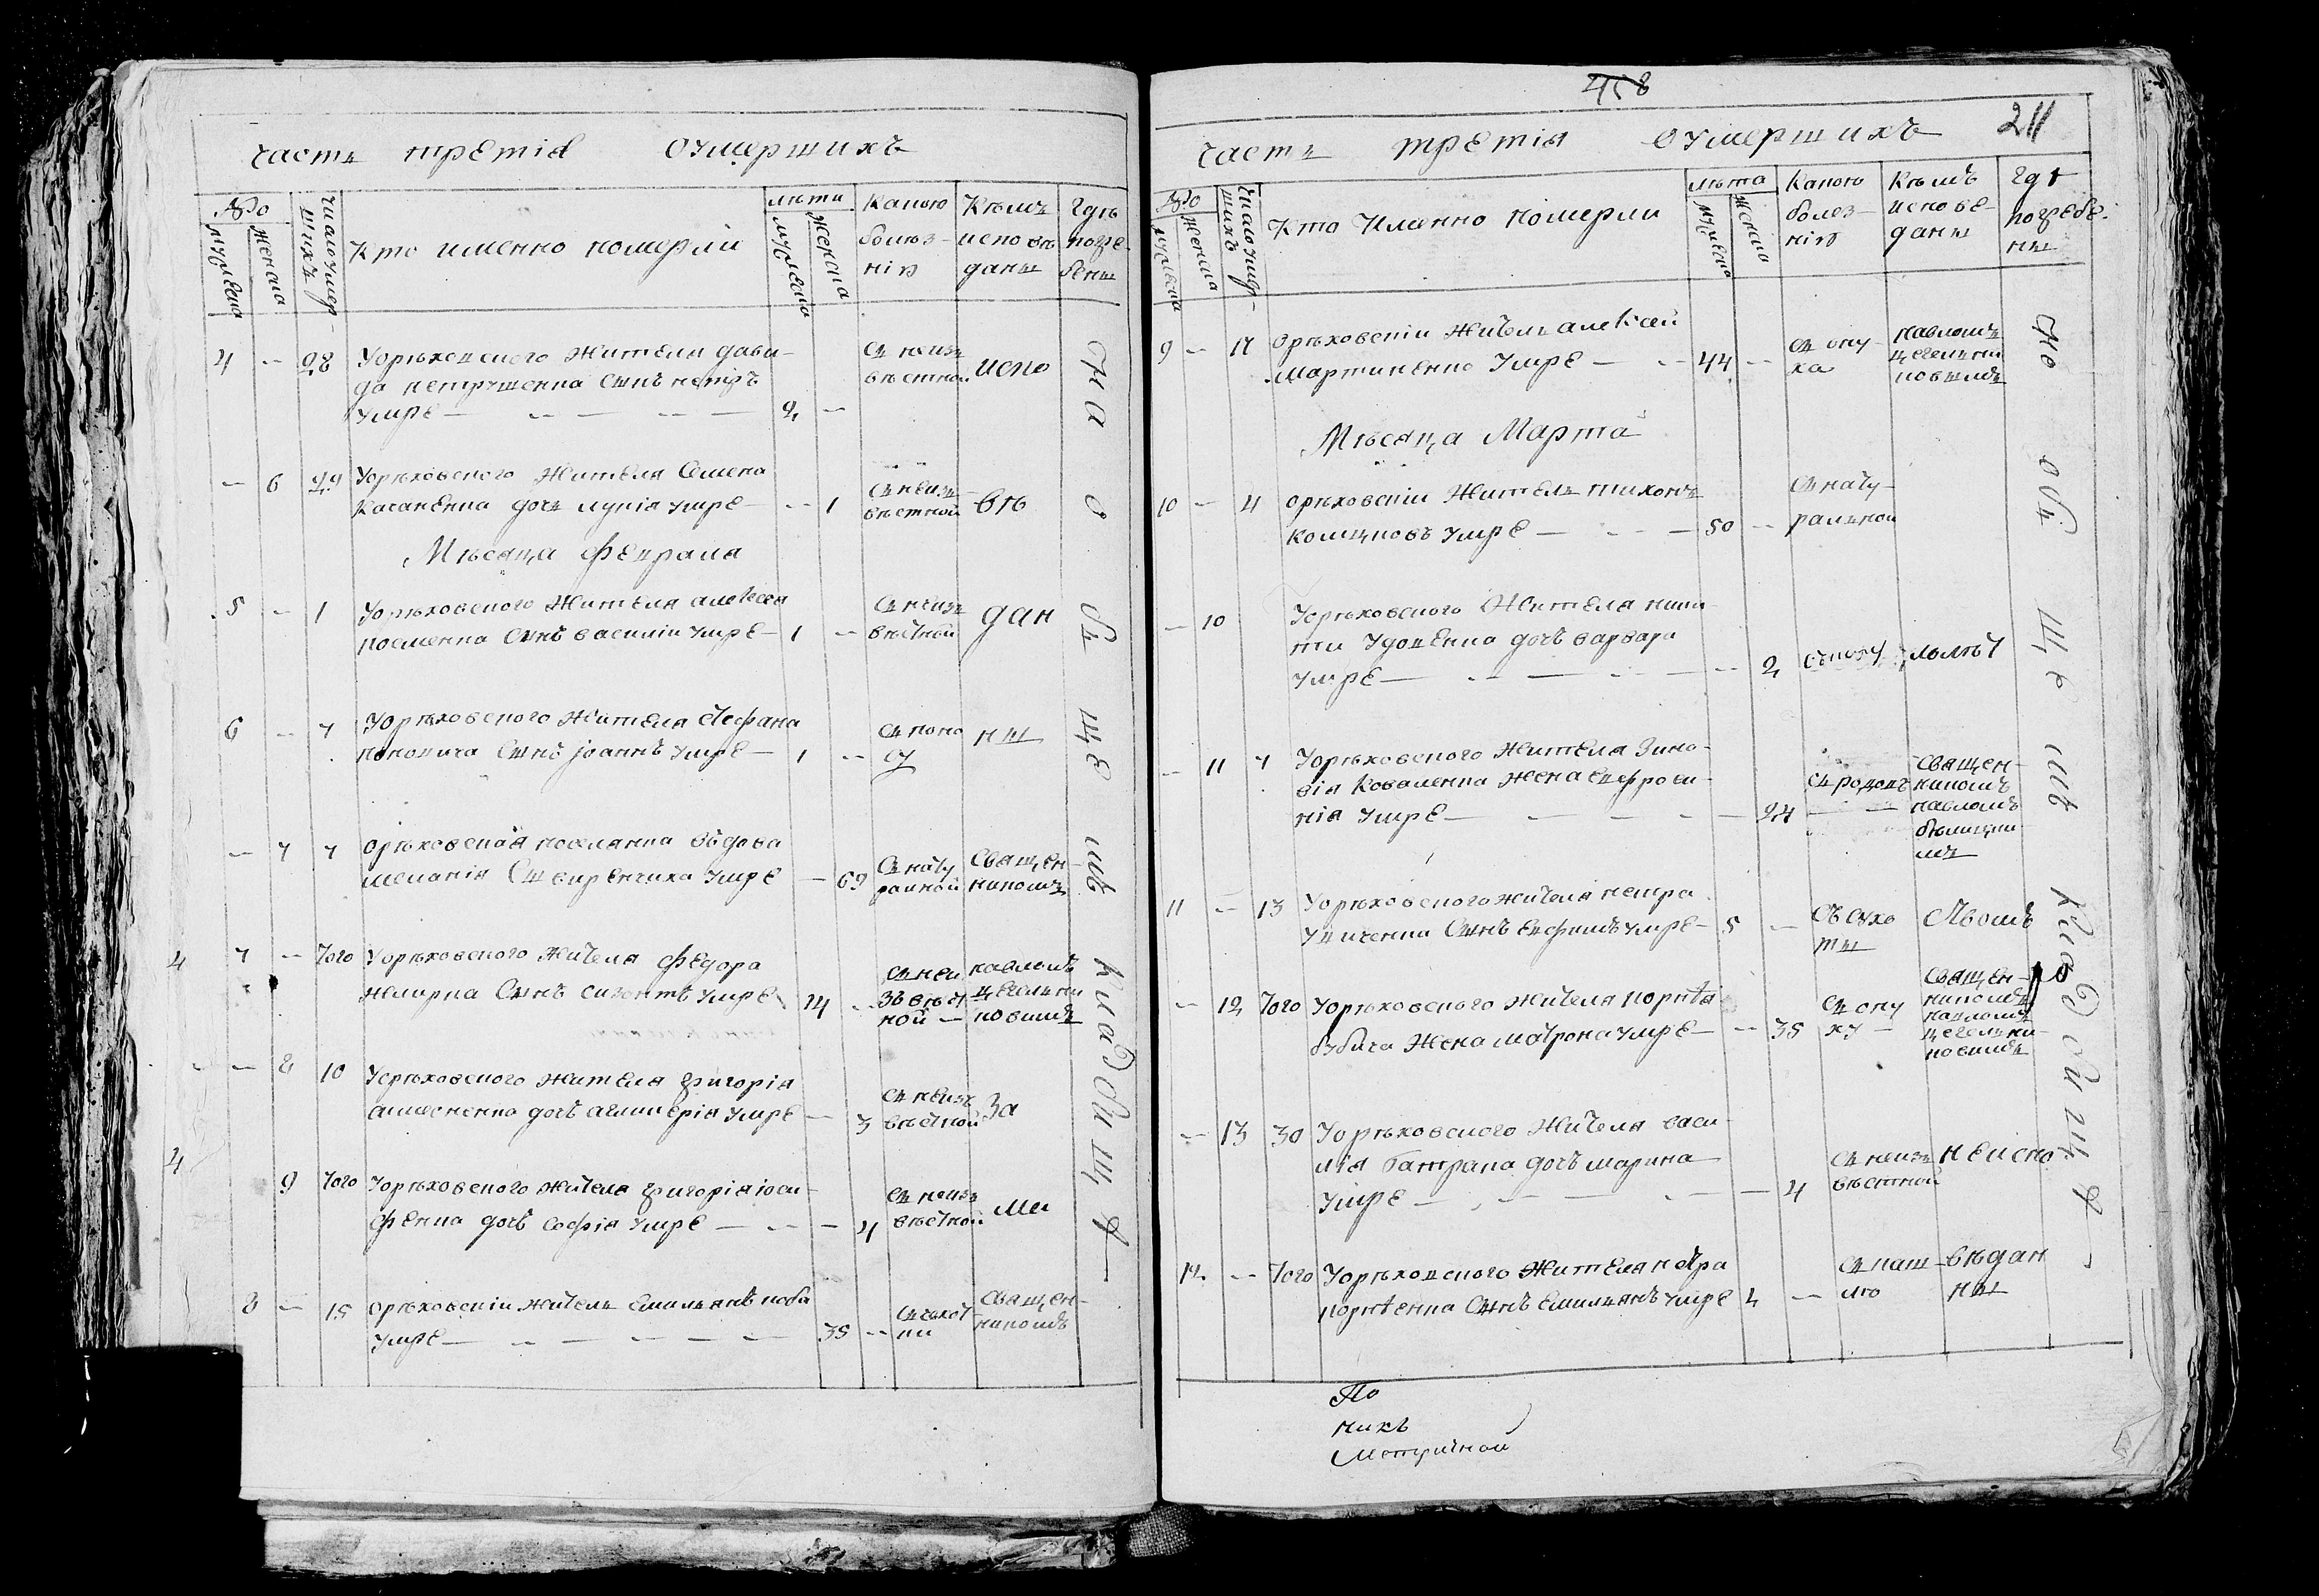 часть третія оумершихъ
№
мужеска
женска
число умер-
шихъ
Кто именно померли
лѣта
мужеска
женска
Какою
болез-
нію
Кѣмъ
исповѣ
даны
Гдѣ
погре-
бены
4 -- 28 У орѣховского жителя дави-
да петрушенка сынъ петръ
умре — 2 --
съ неизъ
вѣстной
испо
— 6 29 У орѣховского жителя Семена
Касаненка дочь лукія умре — -- 1
съ неизъ
вѣстной
вѣ
Мѣсяца февраля
5 -- 1 У орѣховского жителя алексея
косменка сынъ василій умре — 1 --
съ неизъ
вѣстной
дан
6 -- 7 У орѣховского жителя стефана
поповича сынъ Іоаннъ умре — 1 --
съ поно
су
ны
— 7 7 орѣховская поселянка вдова
меланія умре — 69
съ нату
ралной
Священ-
никомъ
7 -- того У орѣховского жителя федора
жмирка сынъ умре 14 --
съ неи
звѣст
ной —
павломъ
цегельни
ковымъ
— 8 10 У орѣховского жителя григорія
дочь гликерія умре — 3
съ неизъ
вѣстной
за
9 того У орѣховского жителя григорія іоси-
фенка дочь софія умре — -- — 4
съ неизъ
вѣстной
ма
8 — 15 орѣховскій житель емильянъ коба
умре — 35 --
съ сухот
ки
Священ-
никомъ
на
об
ще
мъ
кладбищѣ
458
211
часть третія оумершихъ
№
мужеска
женска
число умер-
шихъ
Кто Именно померли
лѣта
мужеска
женска
Какою
болез-
нію
Кѣмъ
испове-
даны
гдѣ
погребе-
ны
9 -- 17 орѣховскій житель алексѣй
мартиненко умре — -- 44 --
съ опу-
ха
павломъ
цегельни
ковымъ
Мѣсяца Марта
10 — 4 орѣховскій житель тихонъ
умре — 50 --
съ нату-
ралной
— 10 У орѣховского жителя ники-
ти удовенка дочъ варвара
умре — -- 2
— 11 7 У орѣховского жителя Зино-
вія Коваленка жена евфроси-
нія умре — 24
съ родовъ
священ-
никомъ
павломъ
11 -- 13 У орѣховского жителя петра
сынъ евфимъ умре — 5 --
съ сухо
ты
Львомъ
— 12 того У орѣховского жителя корнѣя
бубича жена матрона умре — -- 35
съ опу
ху —
священ-
никомъ
павломъ
цегельни-
ковымъ
— 13 30 У орѣховского жителя васи-
лія батрака дочъ марина
умре — 4
съ неизъ
вѣстной
неиспо-
12 -- того У орѣховского жителя петра
корнѣенка сынъ емильянъ умре 4 —
съ каш-
лю
вѣдан
ны
на
об
ще
мъ
кладбищѣ
По
никъ
Метричной